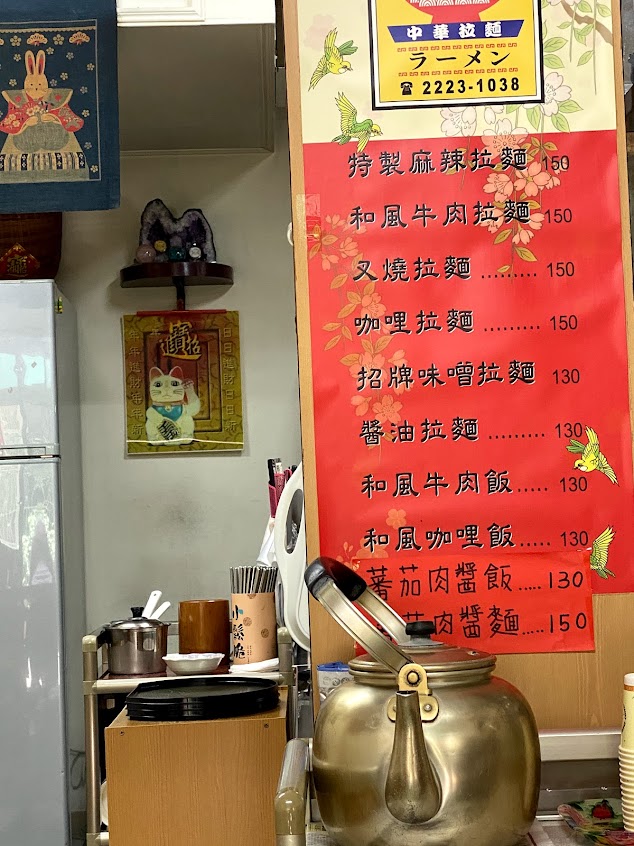 中華拉麵
ラーメン
☎ 2223-1038
特製麻辣拉麵 150
和風牛肉拉麵 150
叉燒拉麵 ......... 150
咖哩拉麵 ......... 150
招牌味噌拉麵 130
醬油拉麵 ......... 130
和風牛肉飯..... 130
和風咖哩飯..... 130
蕃茄肉醬飯.....130
茄肉醬麵.....150
招財進寶
日日進財日日
小鬆脆